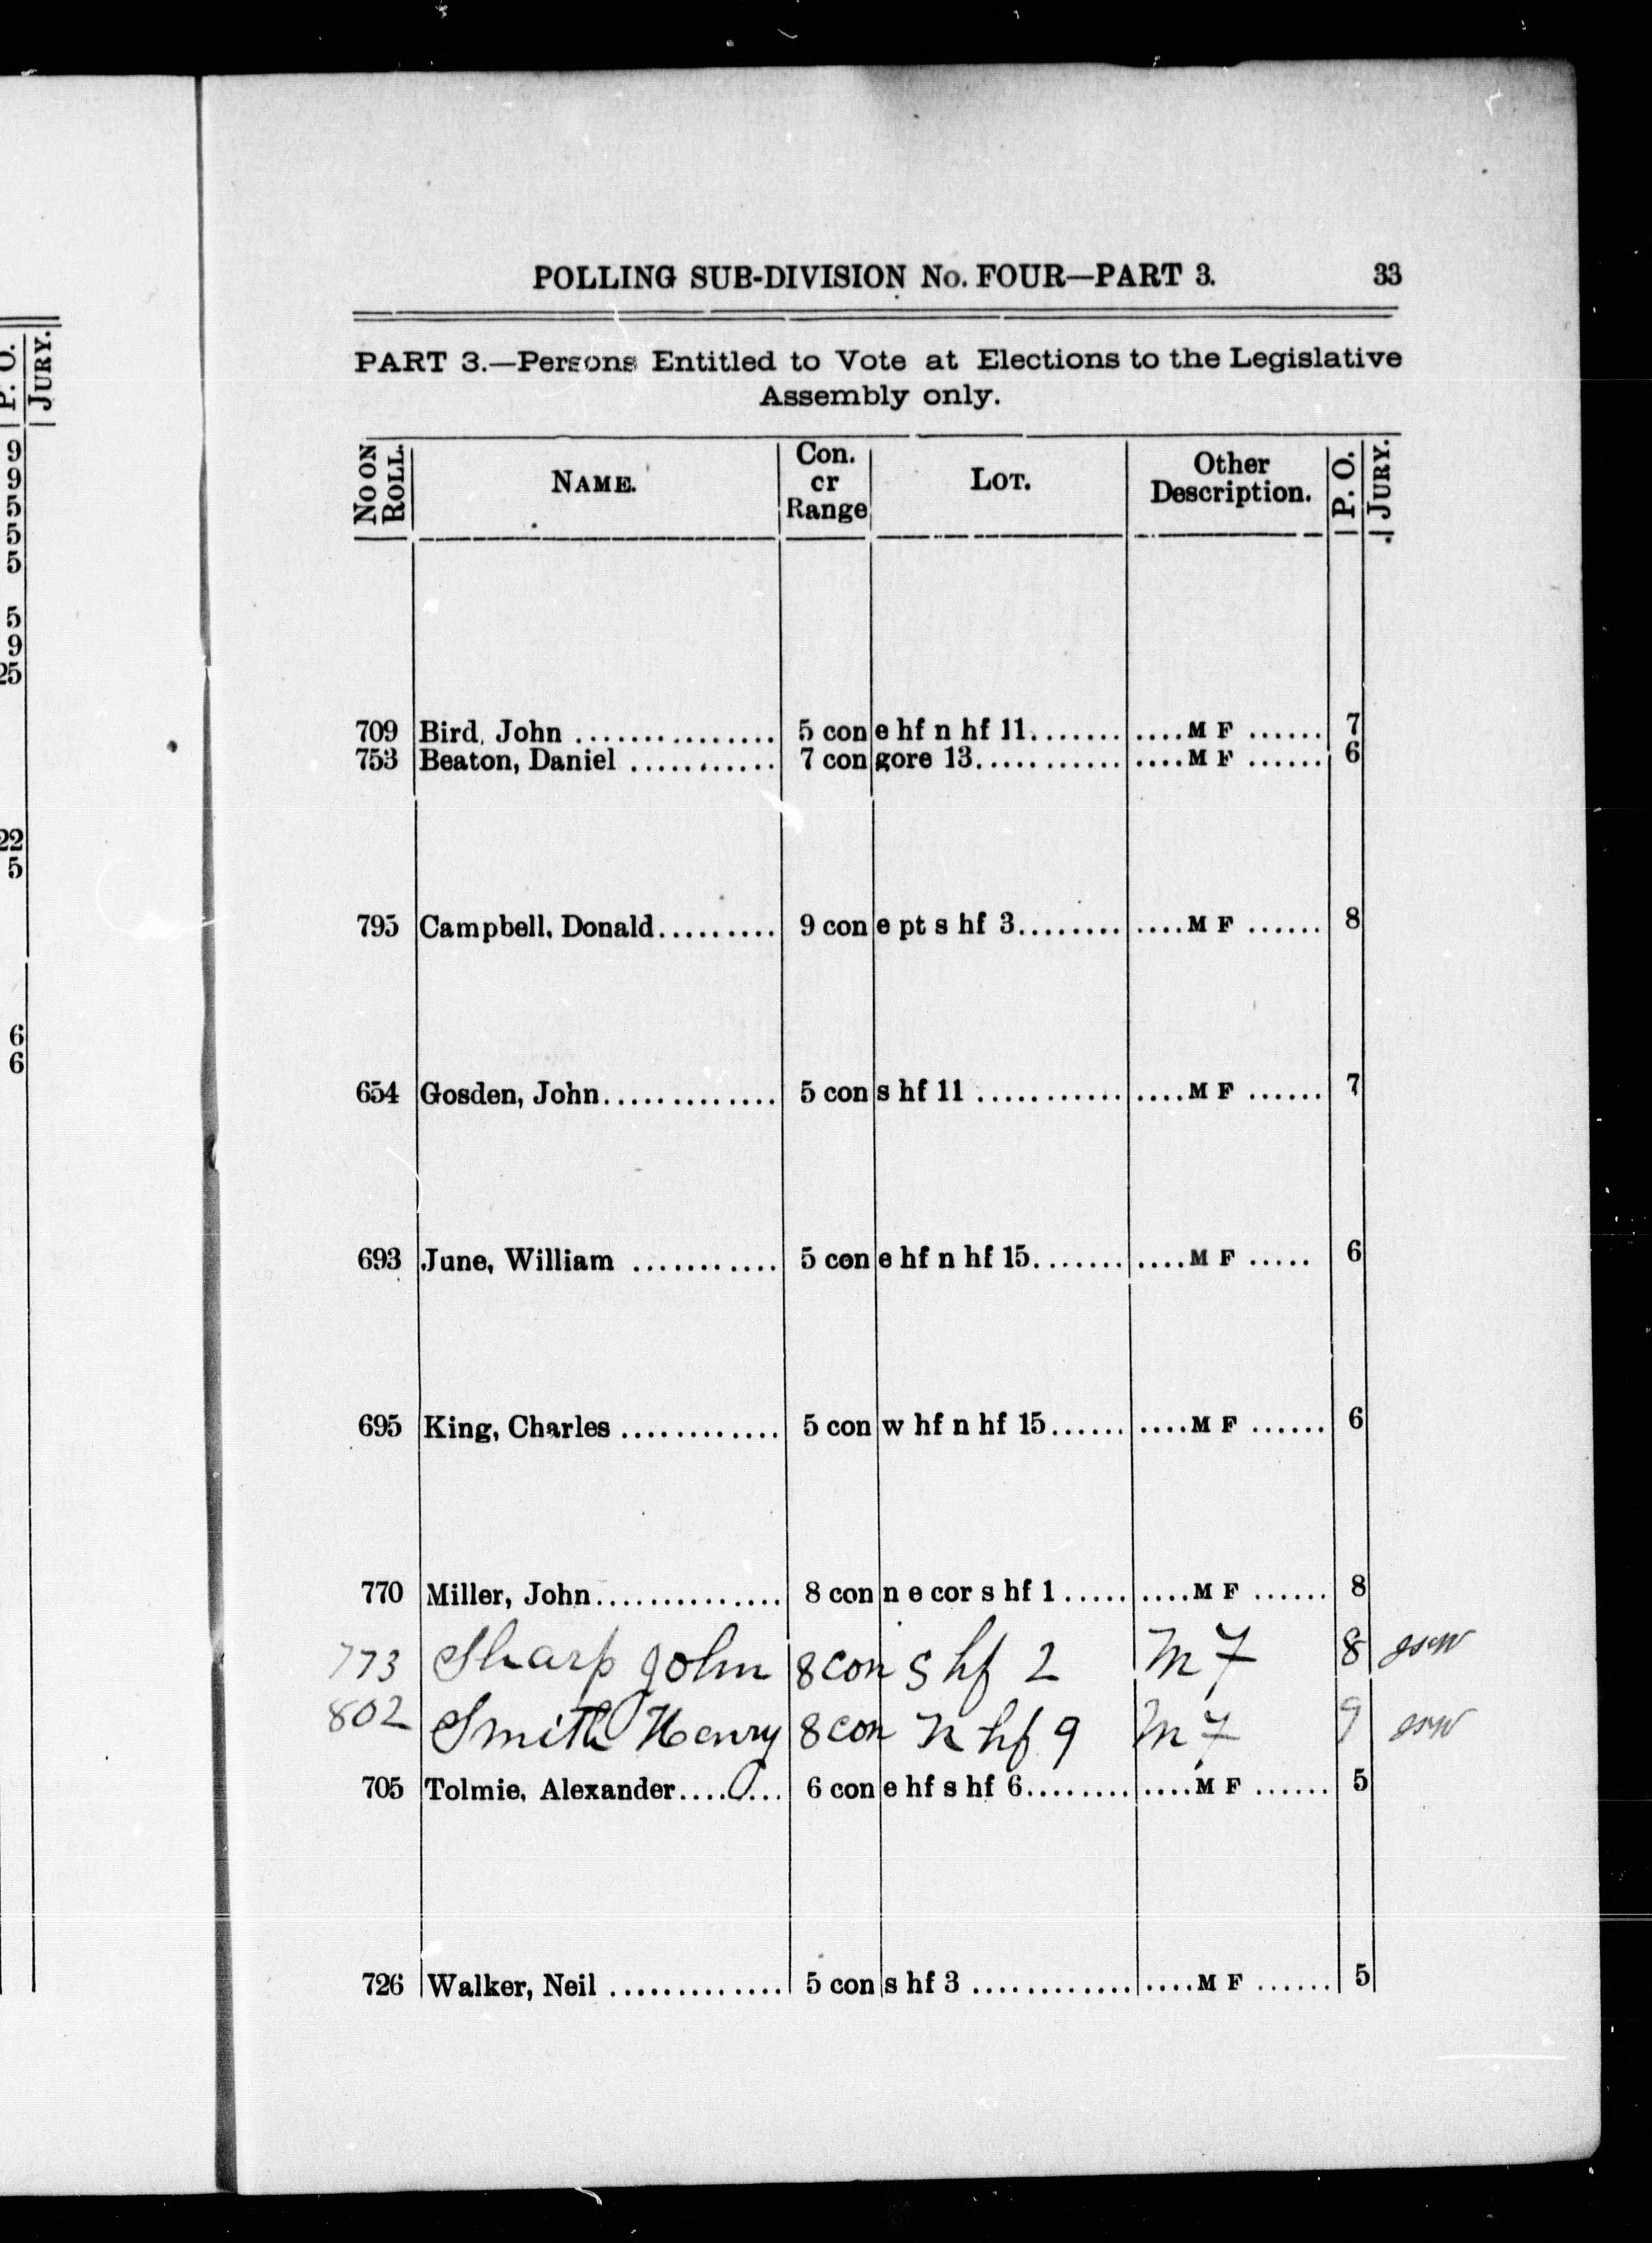 P. O.
JURY.
9
9
5
5
5
5
9
25
22
5
6
6
POLLING SUB-DIVISION No. FOUR—PART 3. 33
PART 3.—Persons Entitled to Vote at Elections to the Legislative
Assembly only.
No ON ROLL. NAME. Con. or Range LOT. Other Description. P. O. JURY.
709 Bird, John ............... 5 con e hf n hf 11....... ....M F ...... 7
753 Beaton, Daniel ........... 7 con gore 13........... ....M F ...... 6
795 Campbell, Donald......... 9 con e pt s hf 3........ ....M F ...... 8
654 Gosden, John............. 5 con s hf 11 ........... ....M F ...... 7
693 June, William ........... 5 con e hf n hf 15....... ....M F ..... 6
695 King, Charles ............ 5 con w hf n hf 15...... ....M F ...... 6
770 Miller, John.............. 8 con n e cor s hf 1..... ....M F ...... 8
773 Sharp John 8 con s hf 2 M F 8
802 Smith Henry 8 con n hf 9 M F 9
705 Tolmie, Alexander........ 6 con e hf s hf 6........ ....M F ...... 5
726 Walker, Neil ............. 5 con s hf 3 ............ ....M F ...... 5